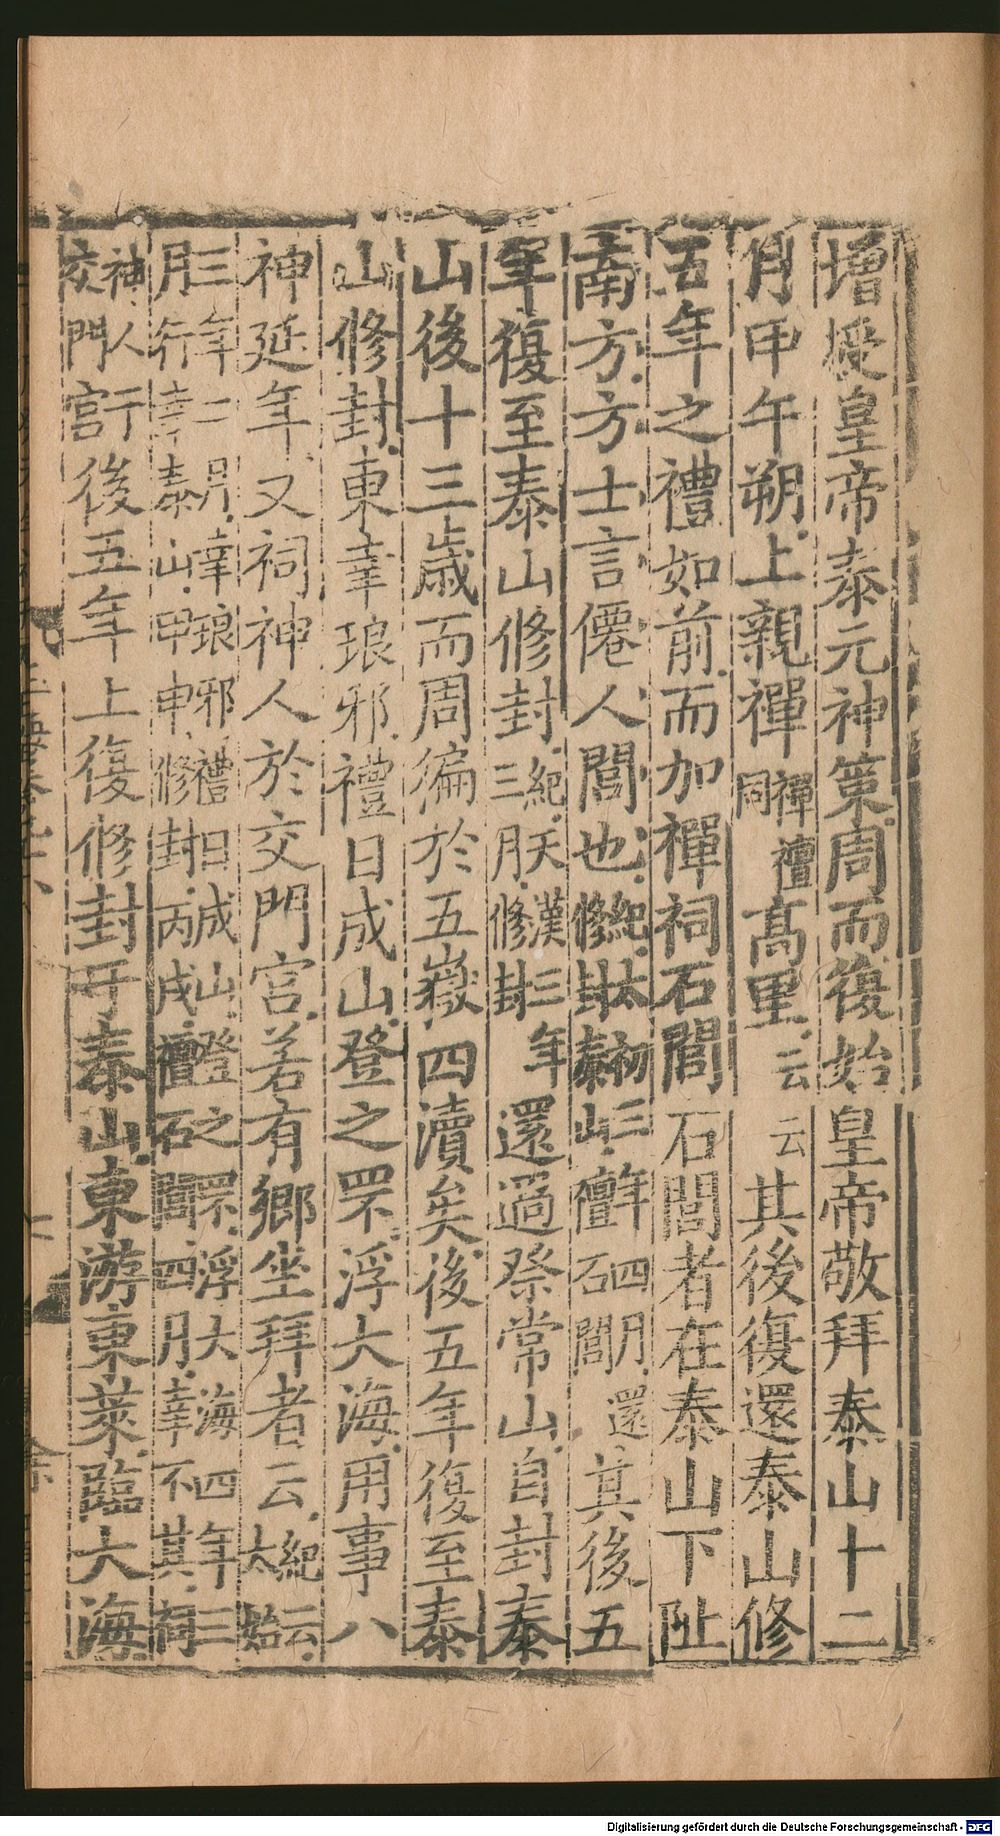 增授皇帝泰元神策周而復始皇帝敬拜泰山十二
月甲午朔上親禪禪檀同高里云云其後復還泰山修
五年之禮如前而加禪祠石閭石閭者在泰山下阯
南方方士言僊人閭也紀太初三年四月還修封泰山禮石閭其後五
年復至泰山修封紀天漢三年三月修封還過祭常山自封泰
山後十三歲而周徧於五嶽四瀆矣後五年復至泰
山修封東幸琅邪禮日成山登之罘浮大海用事八
神延年又祠神人於交門宮若有鄉坐拜者云紀云太始
三年二月幸琅邪禮日成山登之罘浮大海四年三月行幸泰山甲申修封丙戌禮石閭四月幸不其有
神人于交門宮後五年上復修封于泰山東游東萊臨大海
Digitalisierung gefördert durch die Deutsche Forschungsgemeinschaft - DFG